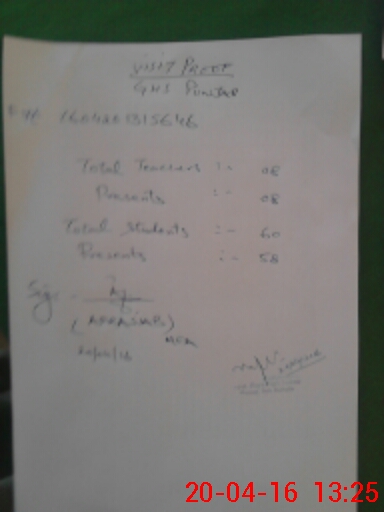 VISIT PROOF
GHS PUNJAR
1604201315646
Total Teachers :- 08
Presents :- 08
Total Students :- 60
Presents :- 58
Sig:-
(AFRASIAB)
MEA
20/04/16
20-04-16 13:25